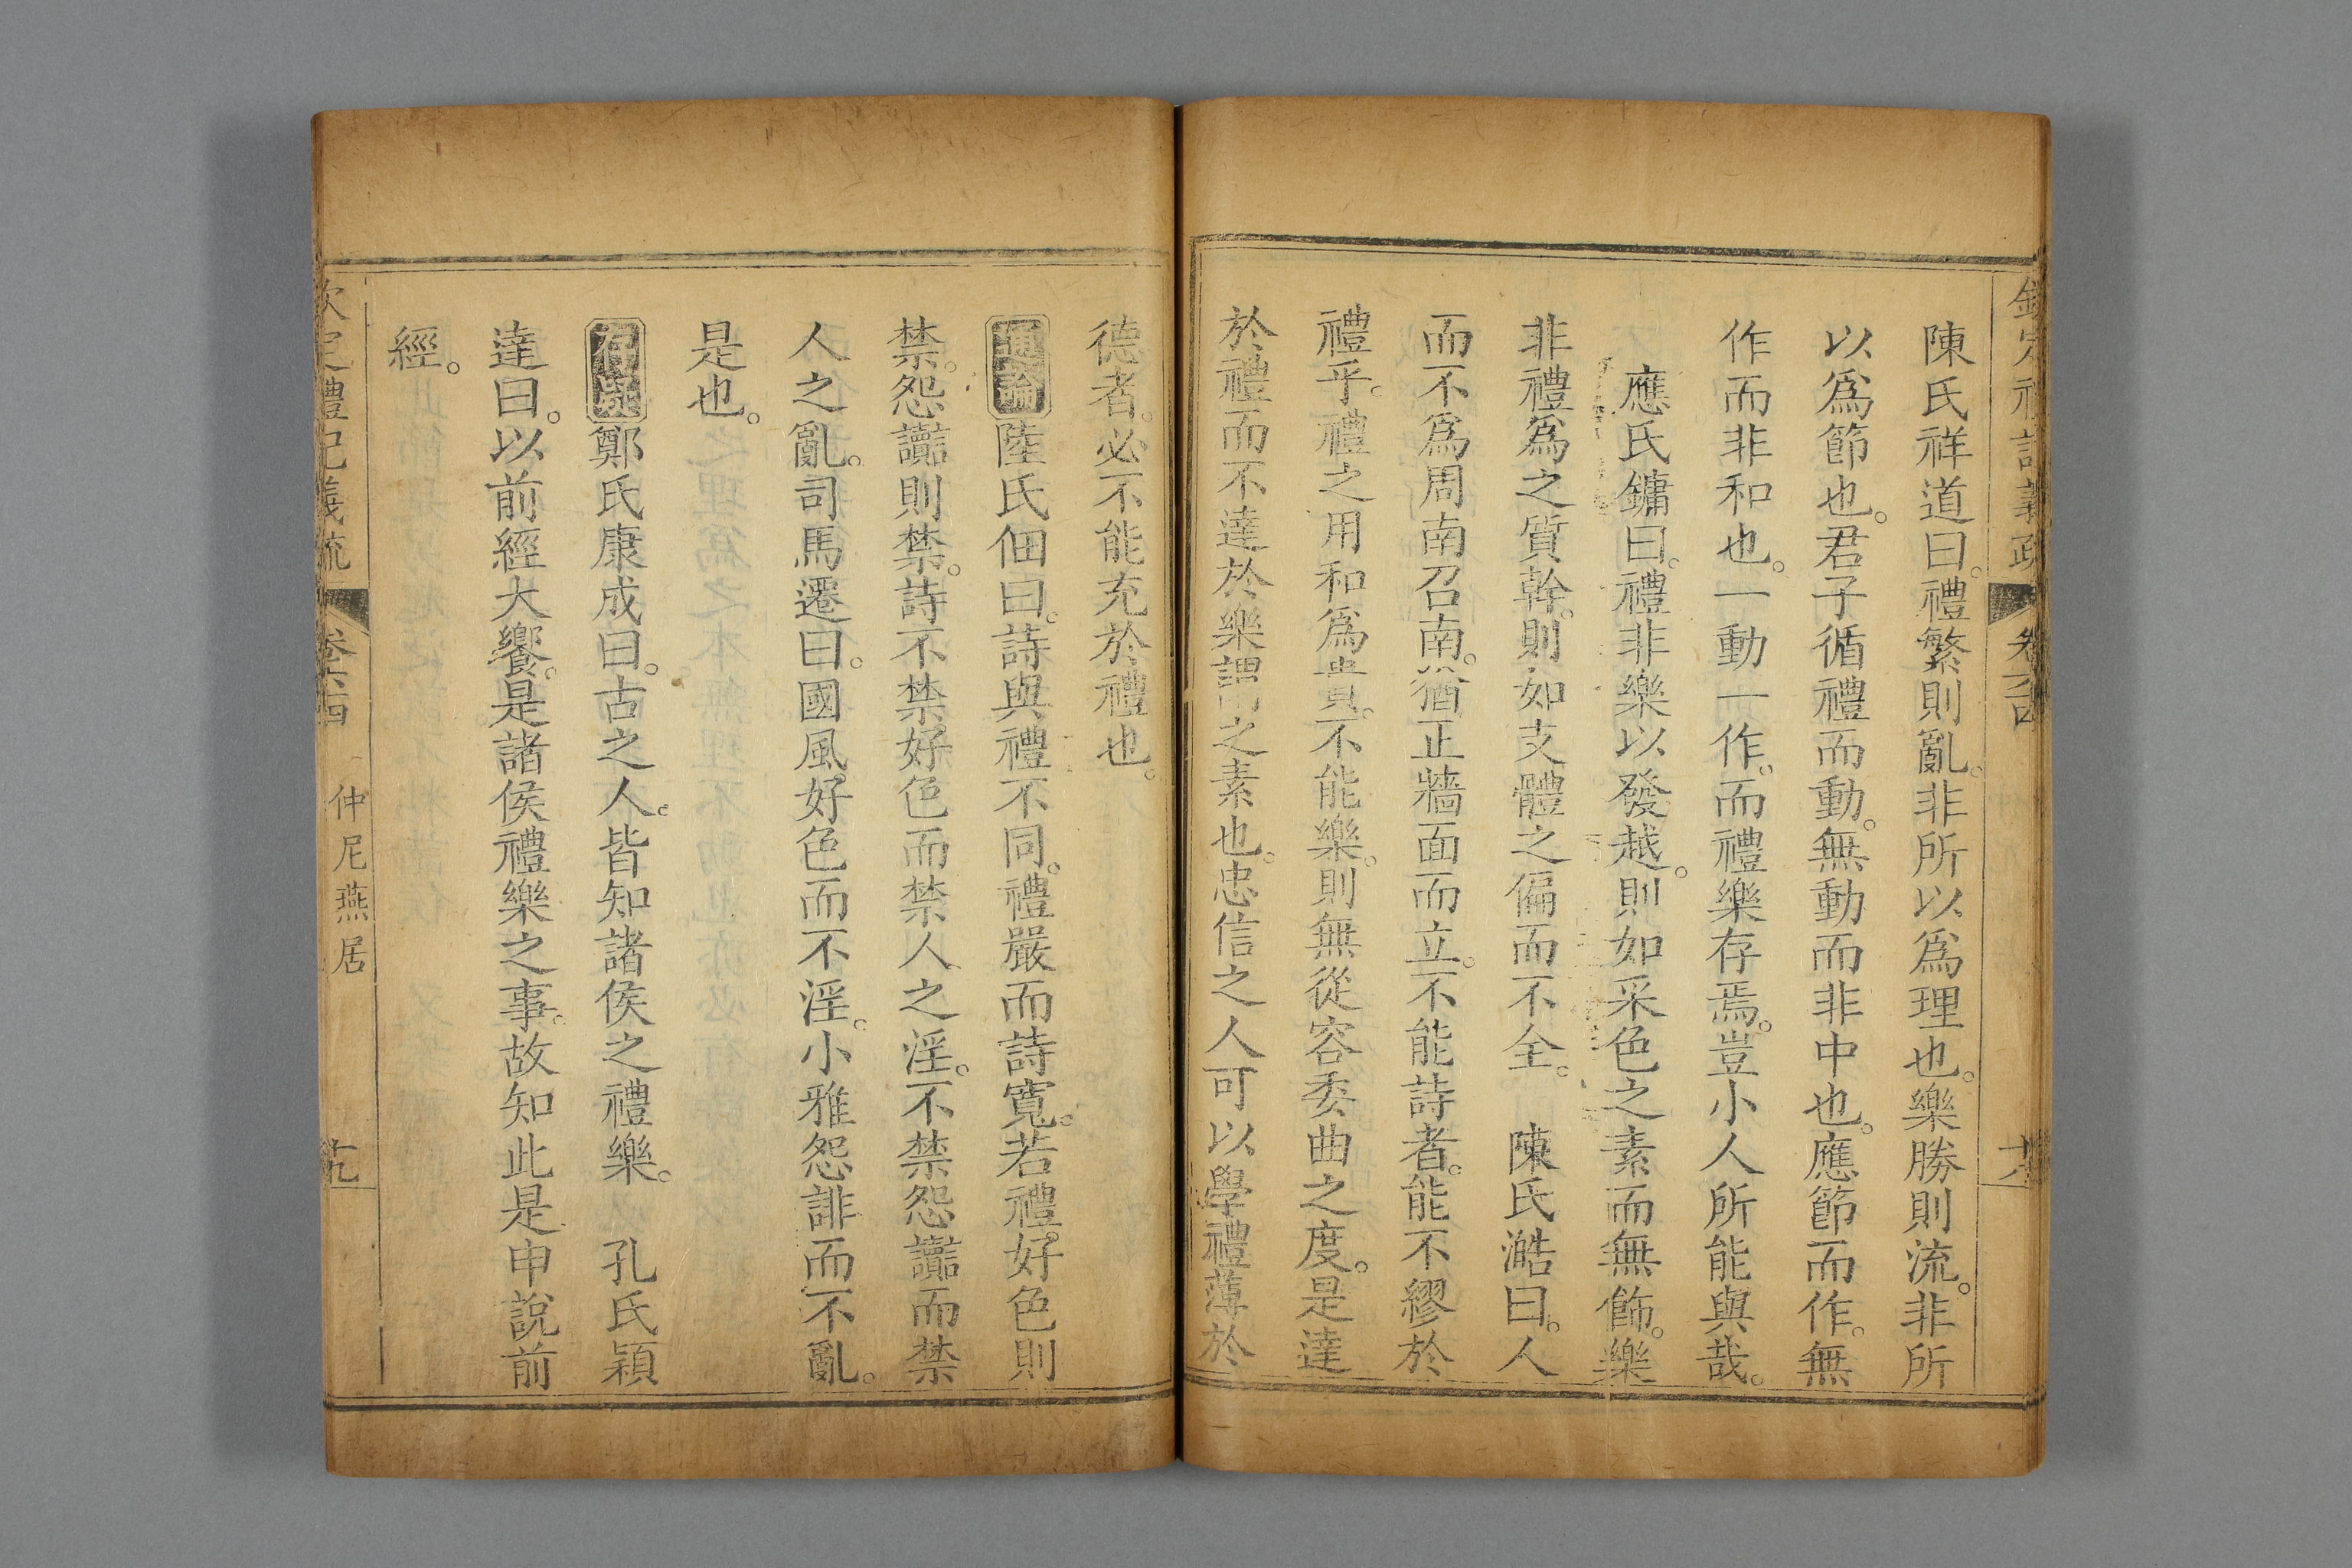 陳氏祥道曰。禮繁則亂。非所以爲理也。樂勝則流。非所
以爲節也。君子循禮而動。無動而非中也。應節而作。無
作而非和也。一動一作。而禮樂存焉。豈小人所能與哉。
應氏鏞曰。禮非樂以發越。則如采色之素而無飾。樂
非禮爲之質幹。則如支體之偏而不全。 陳氏澔曰。人
而不爲周南召南。猶正牆面而立。不能詩者。能不繆於
禮乎。禮之用和爲貴。不能樂。則無從容委曲之度。是達
於禮而不達於樂謂之素也。忠信之人可以學禮薄於
德者。必不能充於禮也。
通論陸氏佃曰。詩與禮不同。禮嚴而詩寬。若禮。好色則
禁。怨讟則禁。詩不禁好色而禁人之淫。不禁怨讟而禁
人之亂。司馬遷曰。國風好色而不淫。小雅怨誹而不亂。
是也。
存異鄭氏康成曰。古之人。皆知諸侯之禮樂。 孔氏穎
達曰。以前經大饗。是諸侯禮樂之事。故知此是申說前
經。
欽定禮記義疏 卷六十四 仲尼燕居 十九